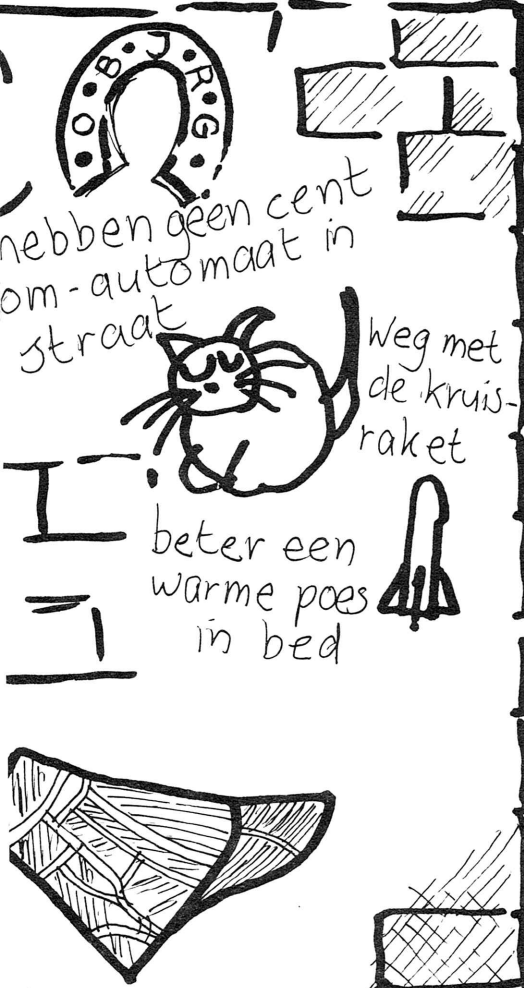 OBJRG
hebben geen cent
om-automaat in
straat
Weg met
de kruis-
raket
beter een
warme poes
in bed